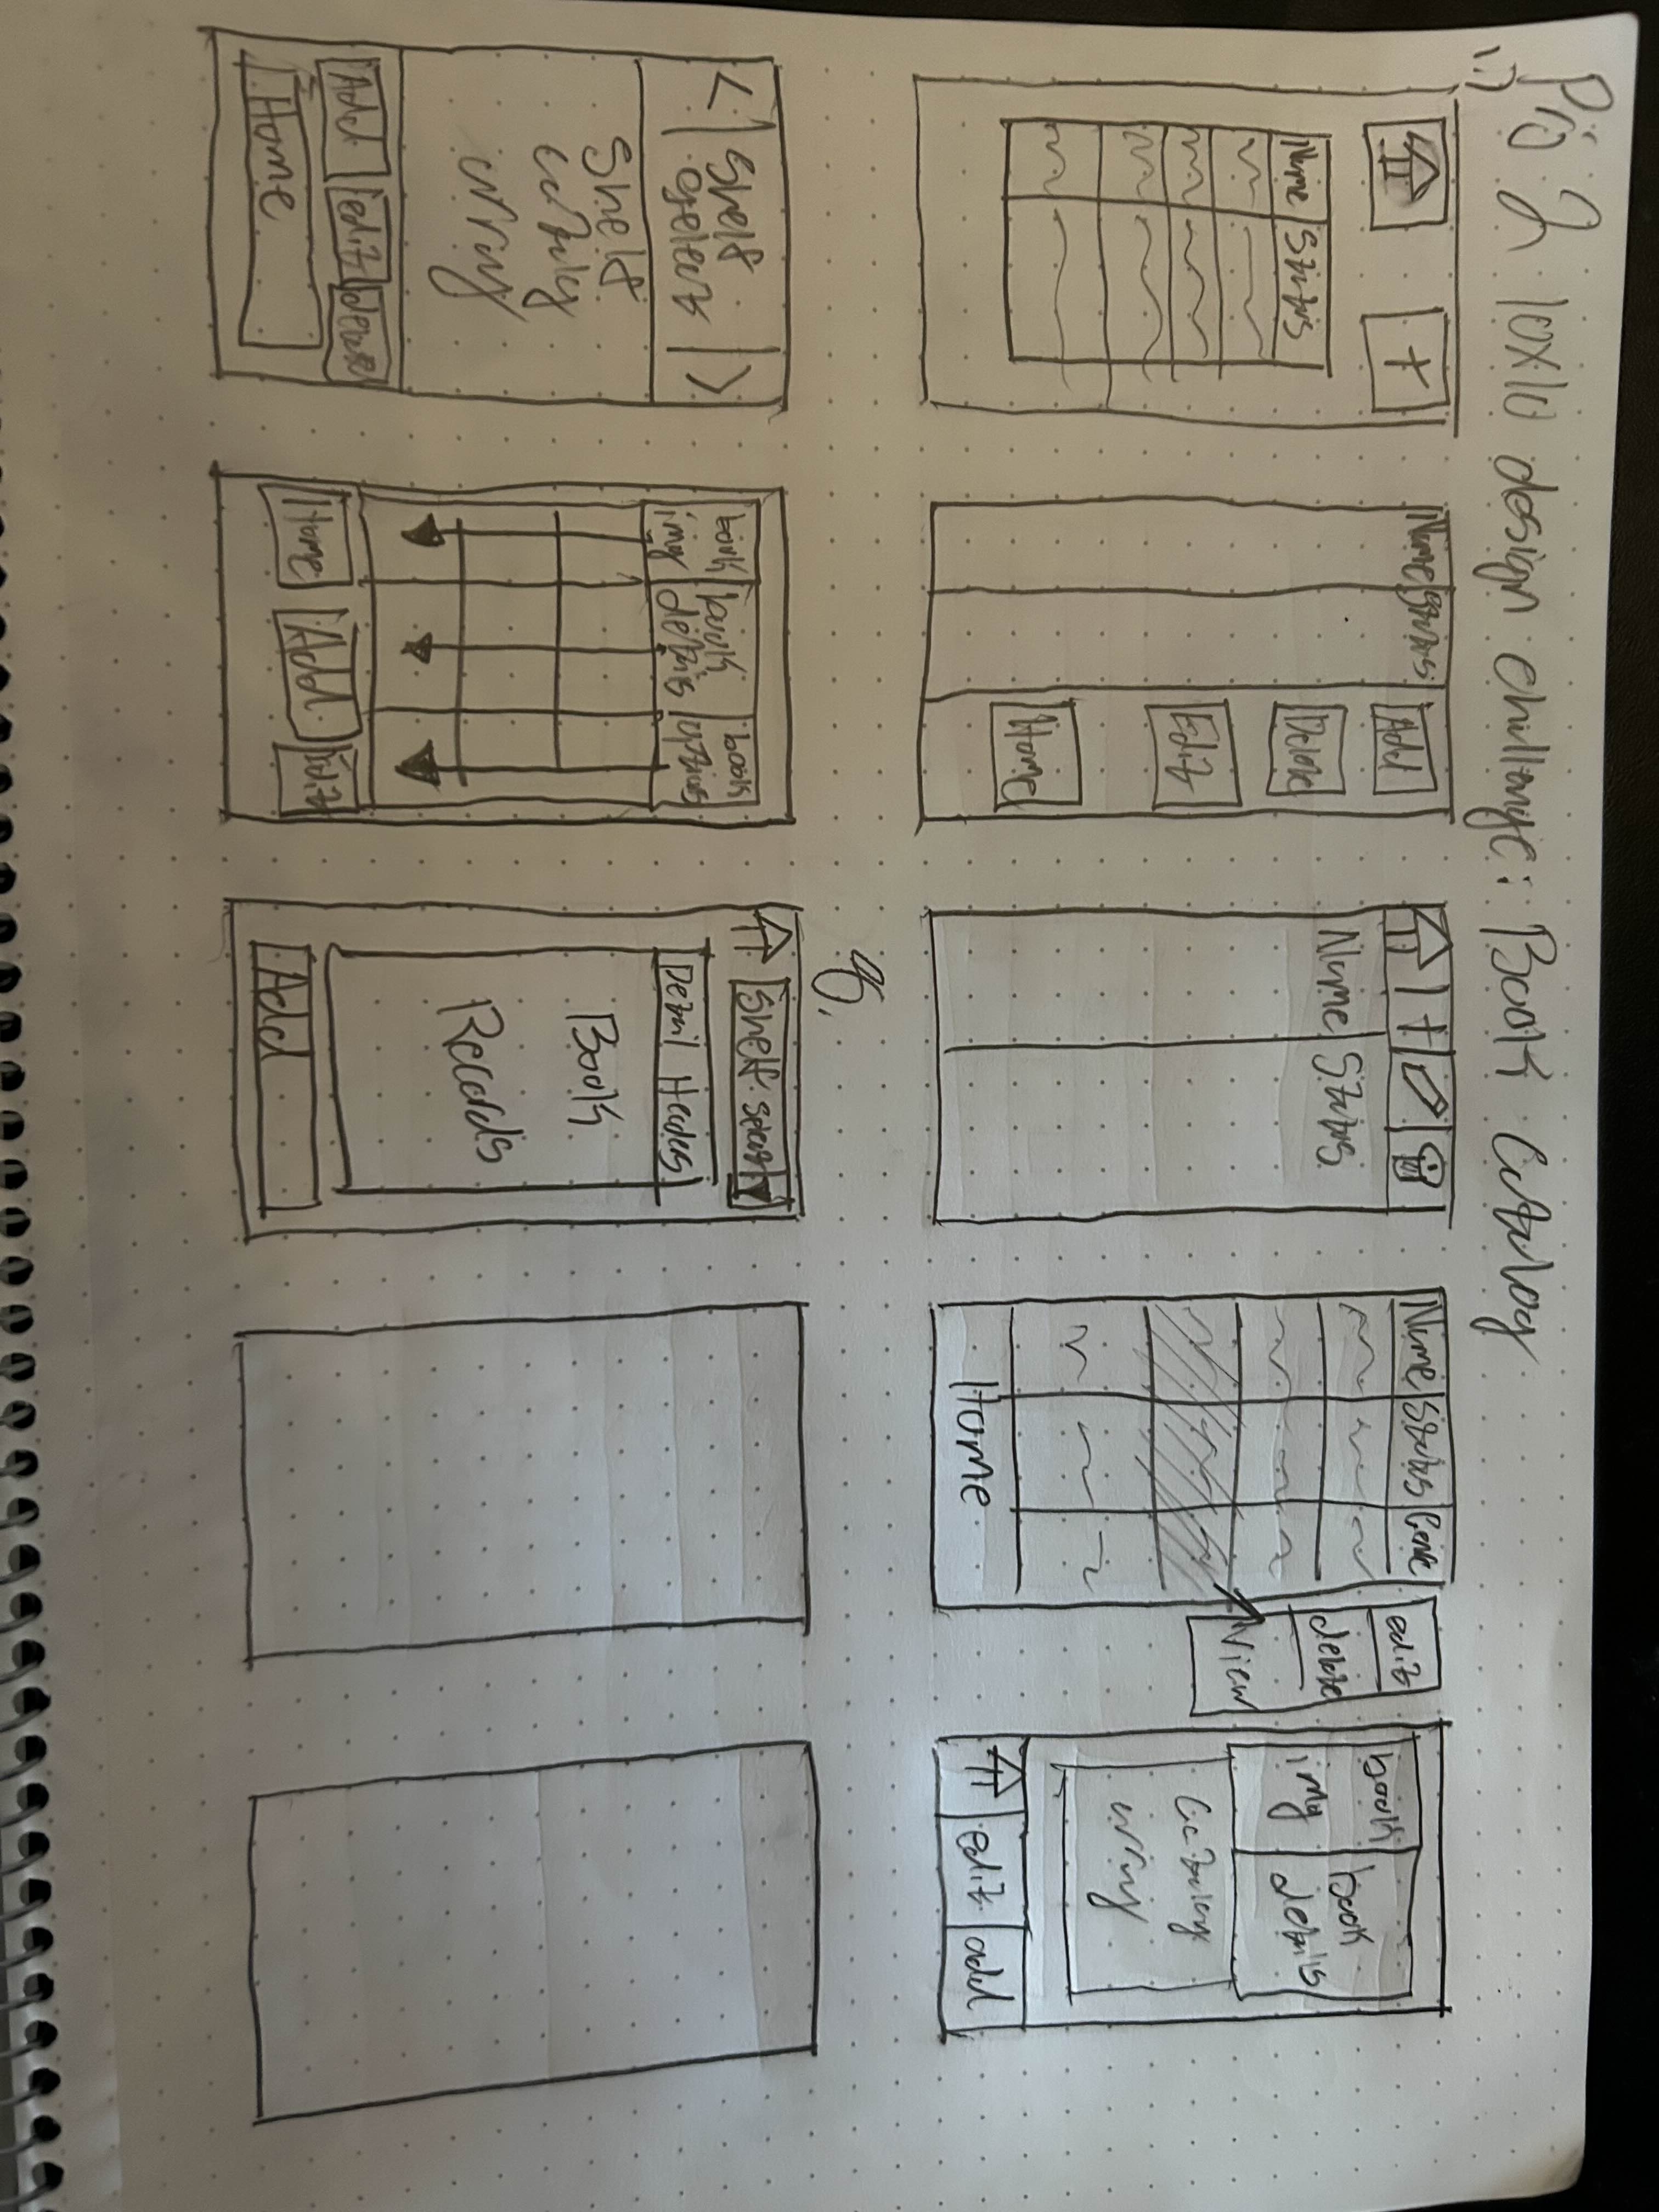 10x10 design challange: Book Catalog
1.)
+
Name Status
Name Status
Add
Delete
Edit
Home
+
Name Status
Name Status Genre
Home
edit
delete
View
book
img
book
details
Catalog
array
edit add
< Shelf
select >
Shelf
catalog
array
Add edit delete
Home
book
img
book
details
book
options
Home Add Edit
8.
Shelf select
Detail Headers
Book
Records
Add